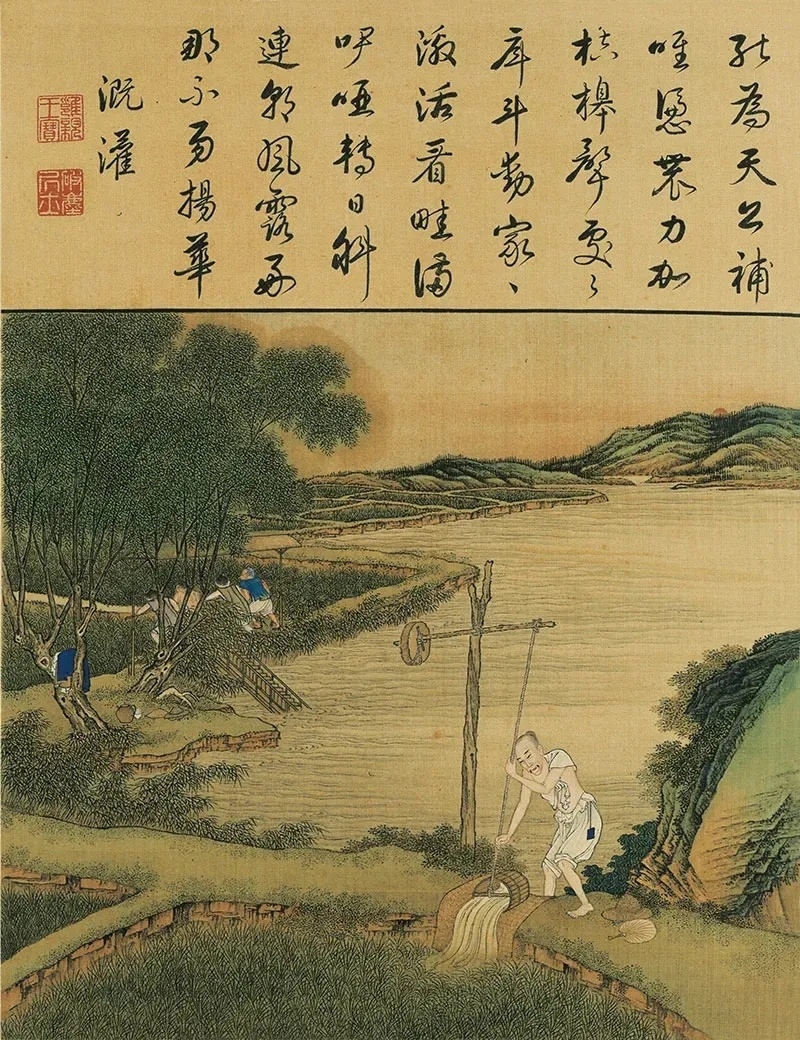 能為天公補
唯憑農力加
桔槔聲處〻
戽斗勤家〻
激活看畦滿
吚啞轉日斜
連朝風露好
那不易揚華
溉灌
雍親王寶
破塵居士